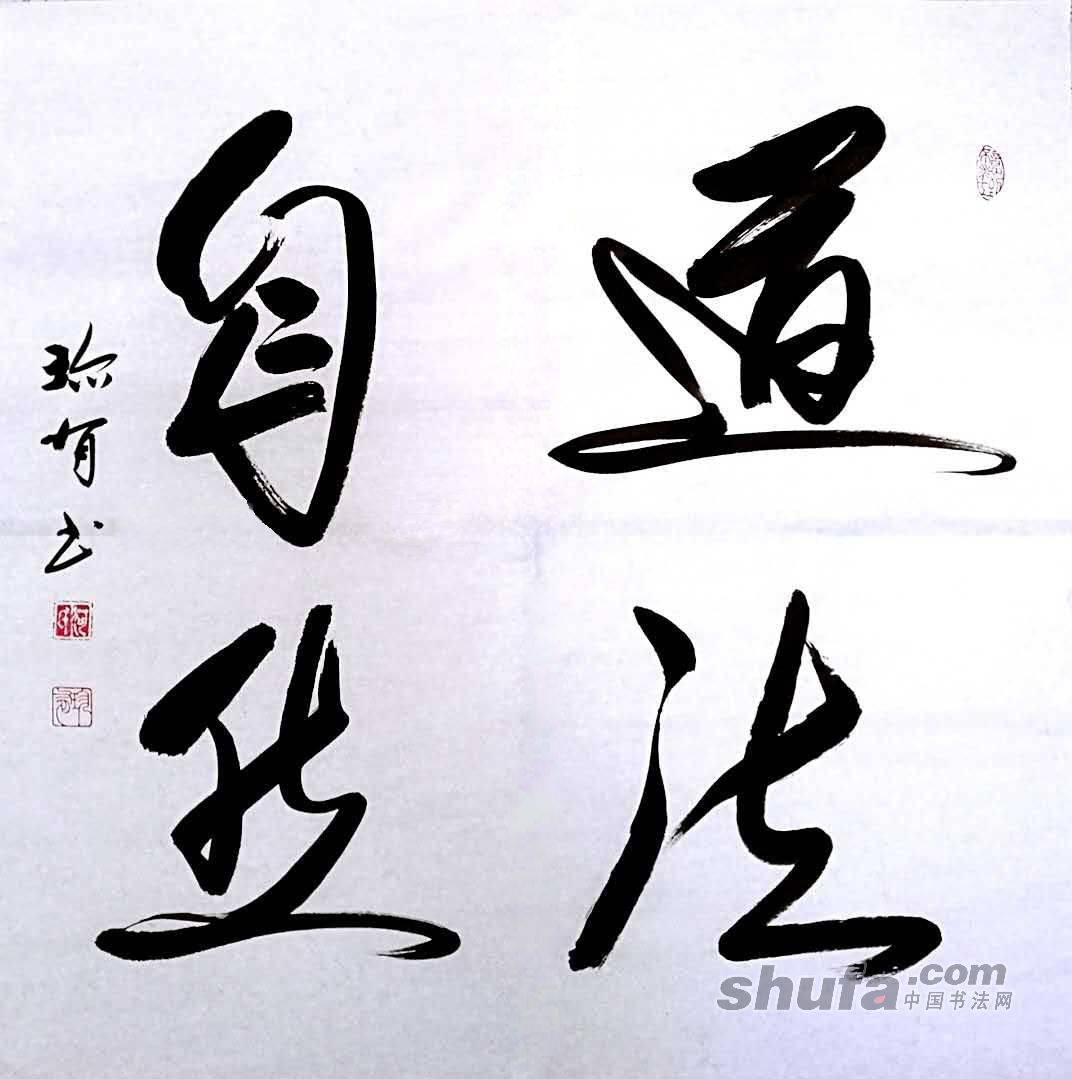 道法
自然
书
shufa.com
中国书法网